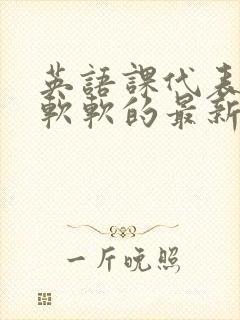 英語課代表
軟軟的最新
一斤晚照